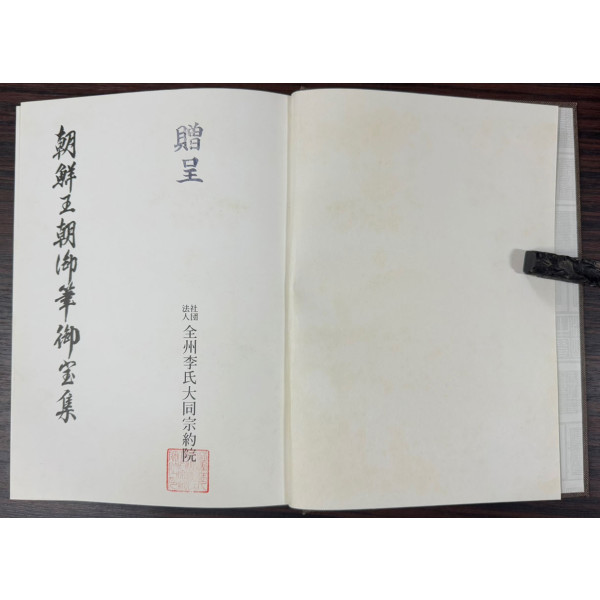 朝鮮王朝御筆御宝集
贈呈
社団
法人
全州李氏大同宗約院